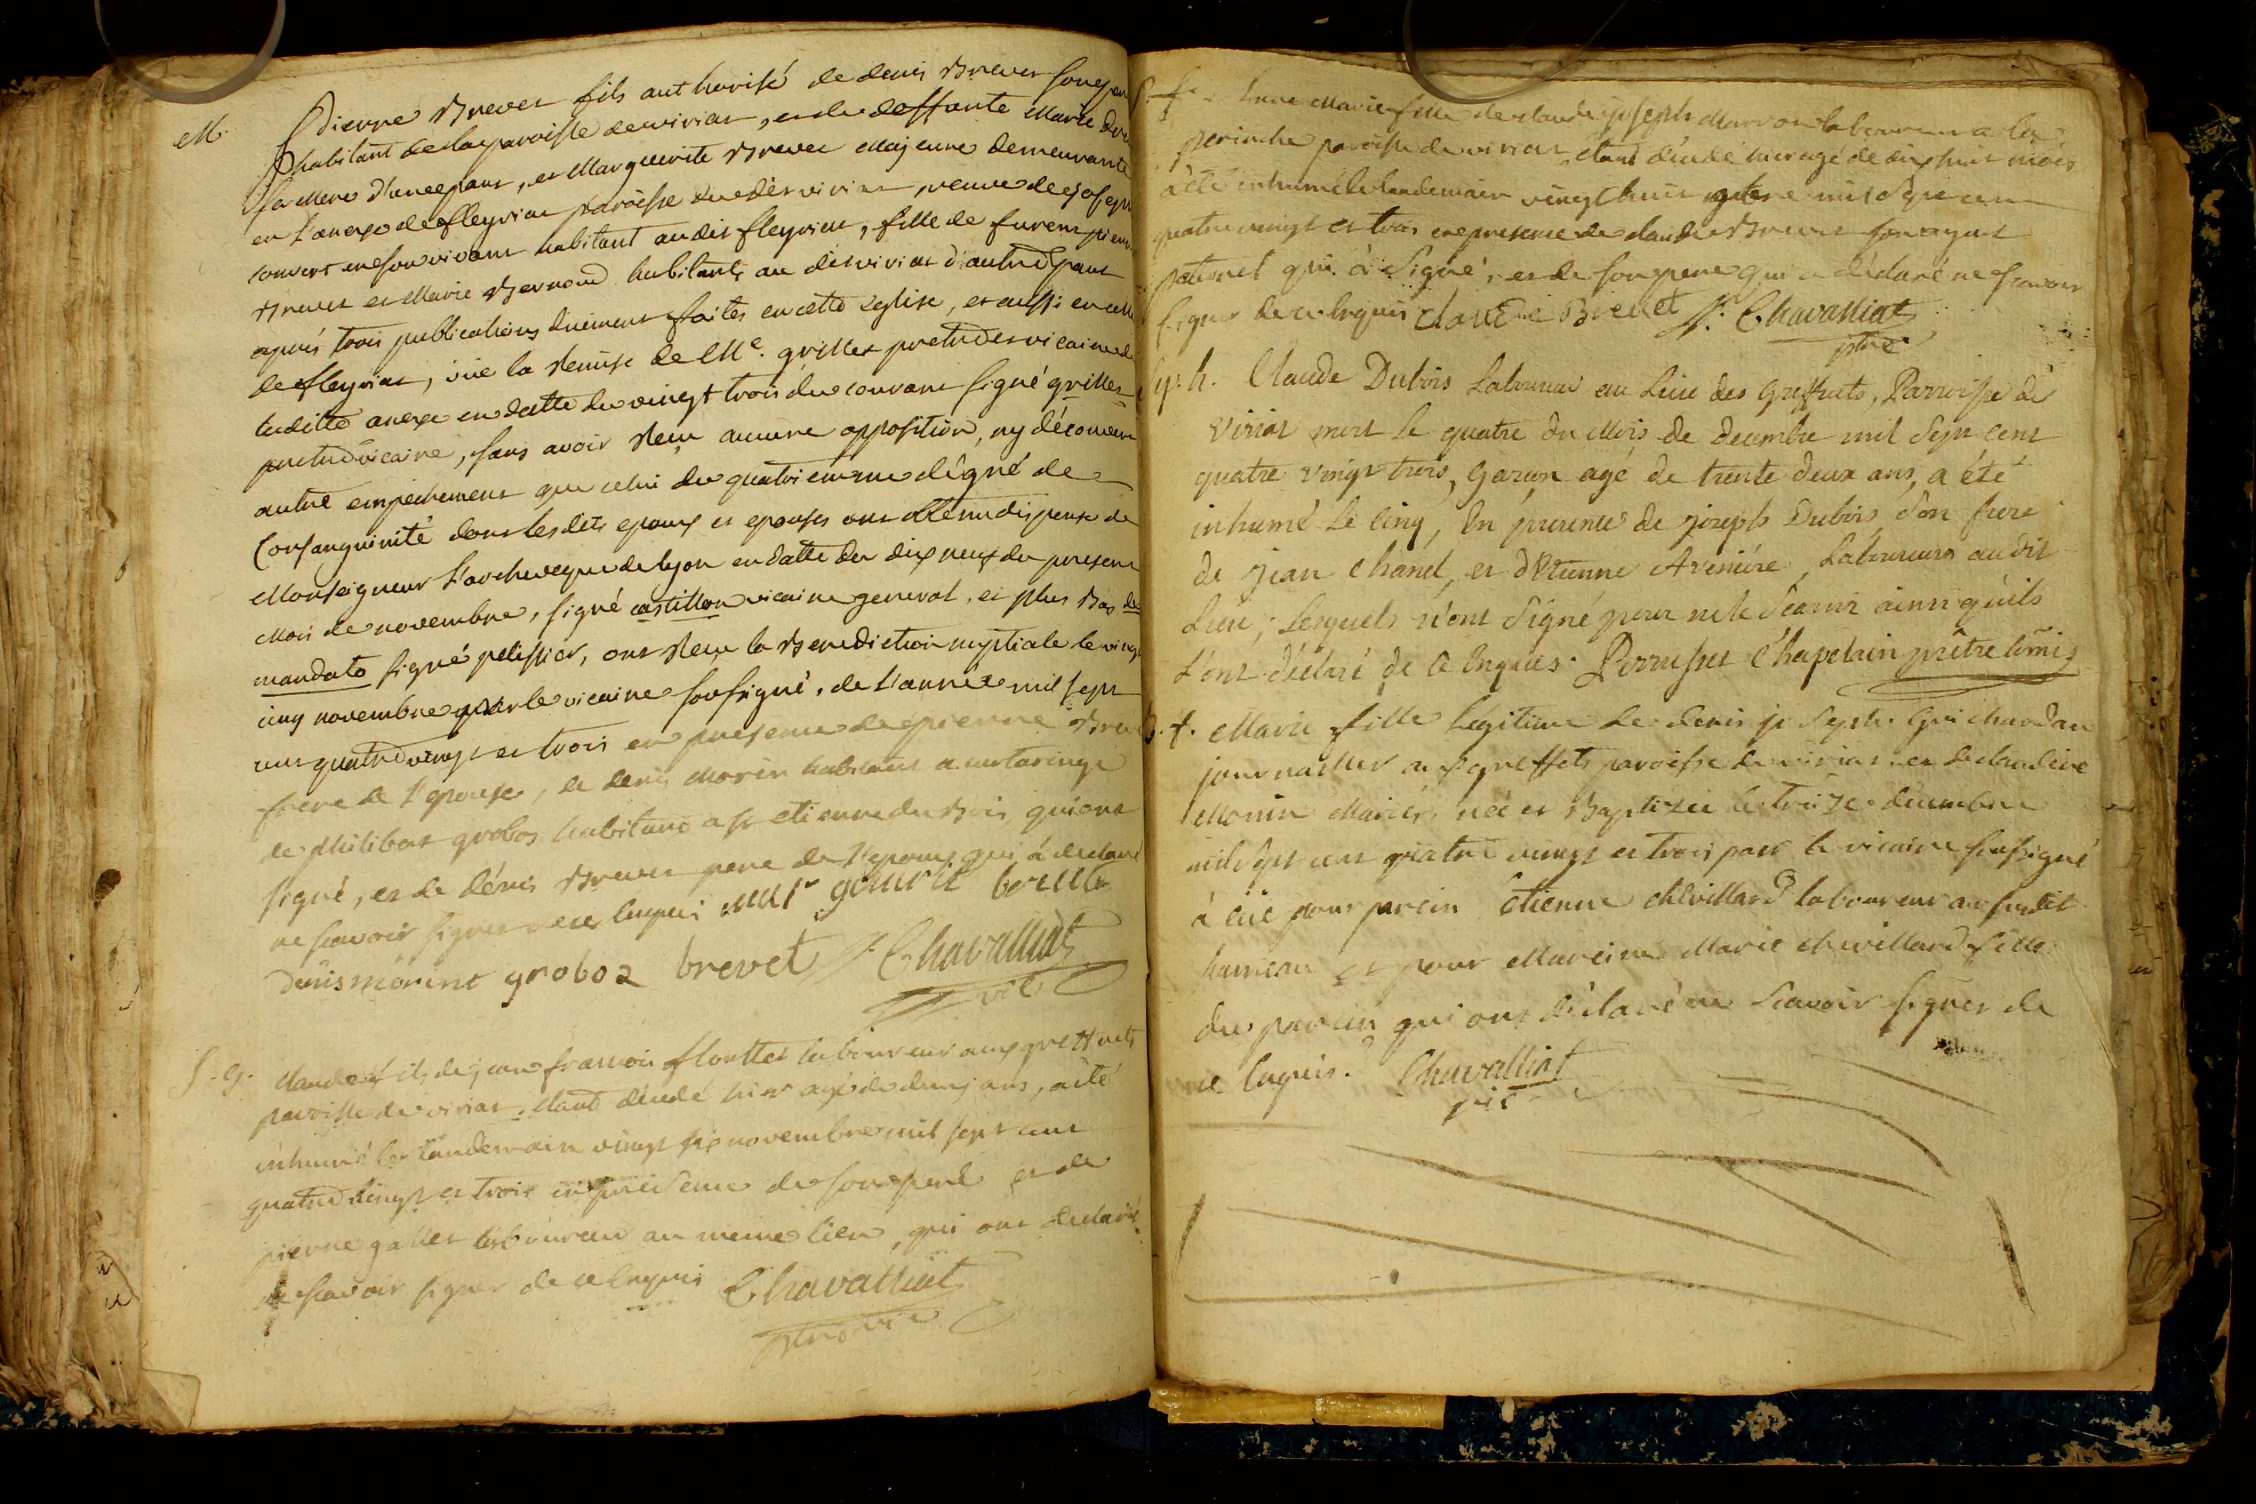 M.
Pierre Brevet fils authorisé de denis Brevet son pere
habitant de la paroisse de viriat, et de deffunte Marie
sa Mere d'une part, et Marguerite Brevet Majeure demeurante
en l'anexe de fleyriat paroisse dudit viriat, veuve de joseph
convert en son vivant habitant audit fleyriat, fille de furent pierre
Brevet et Marie Bernard habitants au dit viriat d'autre part
après trois publications düement faites en cette église, et aussi en celle
de fleyriat, vüe la Remise de Me. grillet pretre vicaire de
laditte anexe en datte du vingt trois du courant signé grillet
pretre vicaire, sans avoir Reçu aucune opposition, ny découvert
autre empechement que celui du quatrieme dégré de
Consanguinité dont lesdits epoux et epouse ont obtenu dispense de
Monseigneur l'archeveque de lyon en datte du dix neuf du present
Mois de novembre, signé castillon vicaire general, et plus Bas de
mandato signé pelissier, ont Reçu la Benediction nuptiale le vingt
cinq novembre par le vicaire soussigné, de l'année mil sept
cent quatre vingt et trois en presence de pierre Brevet
frere de l'epouse, de denis Morin habitant a curtaringe
de philibert grobos habitant a st etienne du Bois, qui ont
signé, et de dénis Brevet pere de l'epoux qui à declaré
ne scavoir signer de ce Enquis
denis morint groboz brevet Chavalliat
vic
S. g. Claude fils de jean francois flouttet laboureur aux greffiets
paroisse de viriat, etant décédé hier agé de deux ans, a été
inhumé le Landemain vingt six novembre mil sept cent
quatre vingt et trois en présence de son pere et de
pierre gallet laboureur au meme lieu, qui ont declaré
ne scavoir signer de ce Enquis Chavalliat
ptre vic
S. f. Anne Marie fille de claude joseph Marron laboureur a la
perinche paroisse de viriat etant décédé hier agé de dix huit mois
à été inhumé le lendemain vingt huit mil sept cent
quatre vingt et trois en presence de claude Brevet son ayeul
paternel qui à signé, et de son pere qui a déclaré ne scavoir
signer de ce Enquis Claude Brevet Chavalliat
ptre
Sp. h. Claude Dubois Laboureur au Lieu des Greffiets, Parroisse de
Viriat mort Le quatre du Mois de decembre mil Sept cent
quatre vingt trois, Garcon agé de trente deux ans, a été
inhumé Le cinq, En presence de joseph Dubois son frere
de jean Chanel, et d'Etienne Aveniére, Laboureurs au dit
Lieu; Lesquels n'ont signé pour ne le Scavoir ainsi qu'ils
L'ont déclaré de ce Enquis. Perruset Chapelain prêtre comis
B. f. Marie fille Légitime de denis joseph Guichardan
journalier au greffets paroisse de viriat, et de claudine
Monin Mariés, née et Baptizée le treize decembre
mil sept cent quatre vingt et trois par le vicaire soussigné
à eüe pour parein Etienne chevillard laboureur au susdit
hameau et pour Mareine Marie chevillard fille
du parein qui ont déclaré ne Scavoir signer de
ce Enquis. Chavalliat
vic